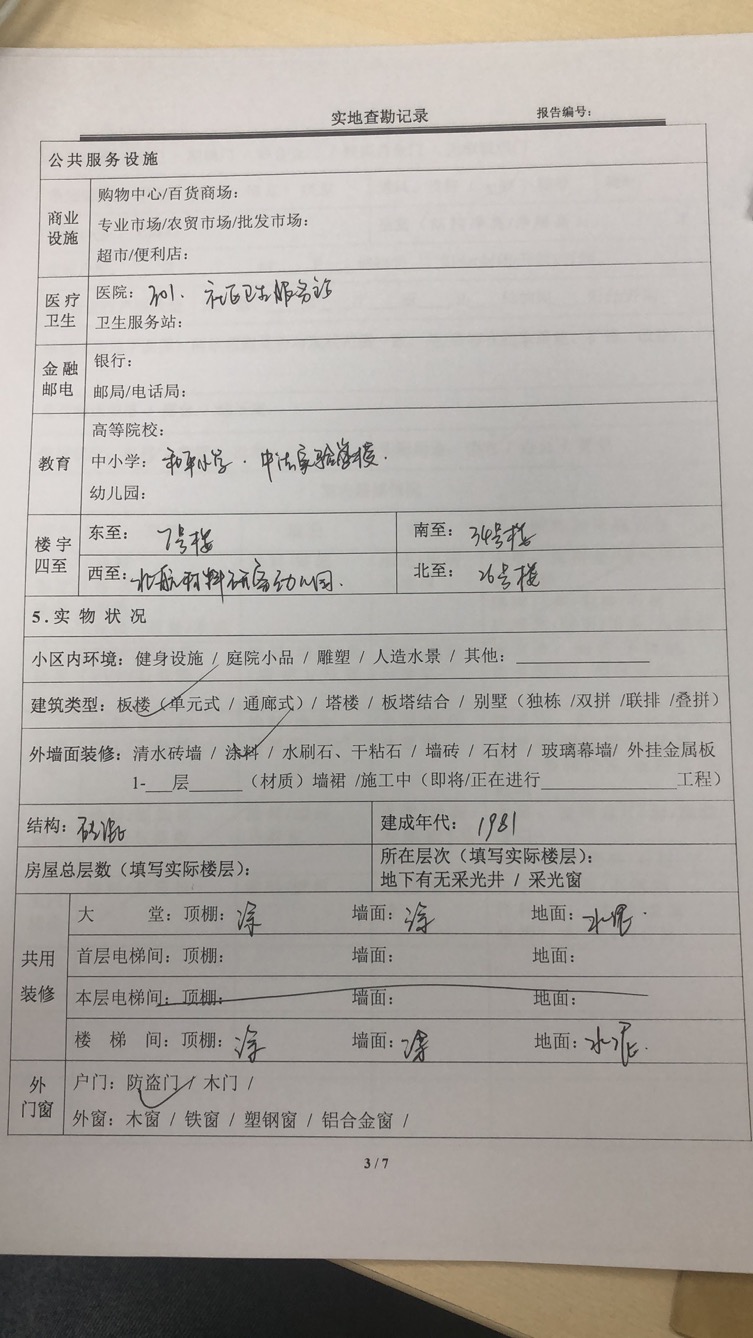 实地查勘记录 报告编号：
公共服务设施
商业设施
购物中心/百货商场：
专业市场/农贸市场/批发市场：
超市/便利店：
医疗卫生
医院：301. 社区卫生服务站
卫生服务站：
金融邮电
银行：
邮局/电话局：
教育
高等院校：
中小学：和平小学·中法实验学校.
幼儿园：
楼宇四至
东至：7号楼 南至：34号楼
西至：北航材料研究幼儿园. 北至：26号楼
5.实物状况
小区内环境：健身设施 / 庭院小品 / 雕塑 / 人造水景 / 其他：
建筑类型：板楼（单元式 / 通廊式）/ 塔楼 / 板塔结合 / 别墅（独栋 /双拼 /联排 /叠拼）
外墙面装修：清水砖墙 / 涂料 / 水刷石、干粘石 / 墙砖 / 石材 / 玻璃幕墙/ 外挂金属板
1-___层______（材质）墙裙 /施工中（即将/正在进行______________工程）
结构：砖混 建成年代：1981
房屋总层数（填写实际楼层）： 所在层次（填写实际楼层）：
地下有无采光井 / 采光窗
共用装修
大堂：顶棚：涂 墙面：涂 地面：水泥.
首层电梯间：顶棚： 墙面： 地面：
本层电梯间：顶棚： 墙面： 地面：
楼梯间：顶棚：涂 墙面：涂 地面：水泥.
外门窗
户门：防盗门 / 木门 /
外窗：木窗 / 铁窗 / 塑钢窗 / 铝合金窗 /
3 / 7